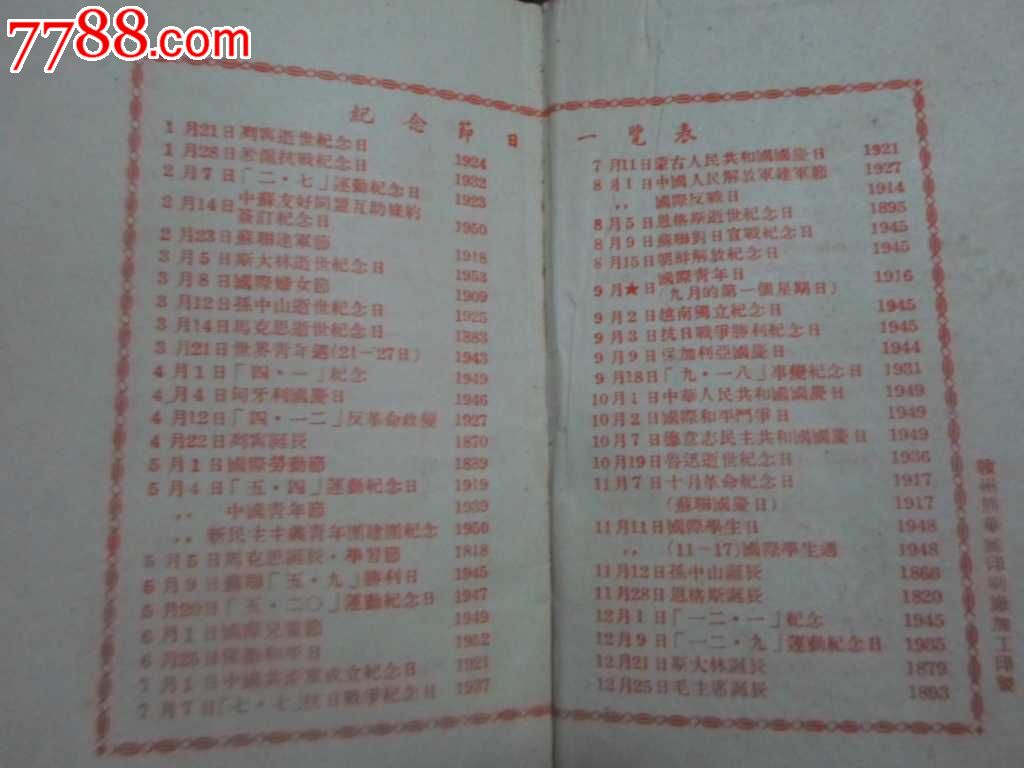 7788.com
紀念節日一覽表
1月21日列寧逝世紀念日 1924
1月28日淞滬抗戰紀念日 1932
2月7日「二·七」運動紀念日 1923
2月14日中蘇友好同盟互助條約
簽訂紀念日 1950
2月23日蘇聯建軍節 1918
3月5日斯大林逝世紀念日 1953
3月8日國際婦女節 1909
3月12日孫中山逝世紀念日 1925
3月14日馬克思逝世紀念日 1883
3月21日世界青年週(21-27日) 1943
4月1日「四·一」紀念 1949
4月4日匈牙利國慶日 1946
4月12日「四·一二」反革命政變 1927
4月22日列寧誕辰 1870
5月1日國際勞動節 1889
5月4日「五·四」運動紀念日 1919
,, 中國青年節 1939
,, 新民主主義青年團建團紀念 1950
5月5日馬克思誕辰·學習節 1818
5月9日蘇聯「五·九」勝利日 1945
5月20日「五·二〇」運動紀念日 1947
6月1日國際兒童節 1949
6月25日保衛和平日 1952
7月1日中國共產黨成立紀念日 1921
7月7日「七·七」抗日戰爭紀念日 1937
7月11日蒙古人民共和國國慶日 1921
8月1日中國人民解放軍建軍節 1927
,, 國際反戰日 1914
8月5日恩格斯逝世紀念日 1895
8月9日蘇聯對日宣戰紀念日 1945
8月15日朝鮮解放紀念日 1945
9月★日國際青年日
(九月的第一個星期日) 1916
9月2日越南獨立紀念日 1945
9月3日抗日戰爭勝利紀念日 1945
9月9日保加利亞國慶日 1944
9月18日「九·一八」事變紀念日 1931
10月1日中華人民共和國國慶日 1949
10月2日國際和平鬥爭日 1949
10月7日德意志民主共和國國慶日 1949
10月19日魯迅逝世紀念日 1936
11月7日十月革命紀念日 1917
(蘇聯國慶日) 1917
11月11日國際學生日 1948
,, (11-17)國際學生週 1948
11月12日孫中山誕辰 1866
11月28日恩格斯誕辰 1820
12月1日「一二·一」紀念 1945
12月9日「一二·九」運動紀念日 1935
12月21日斯大林誕辰 1879
12月25日毛主席誕辰 1893
州 華 印刷廠加工印製